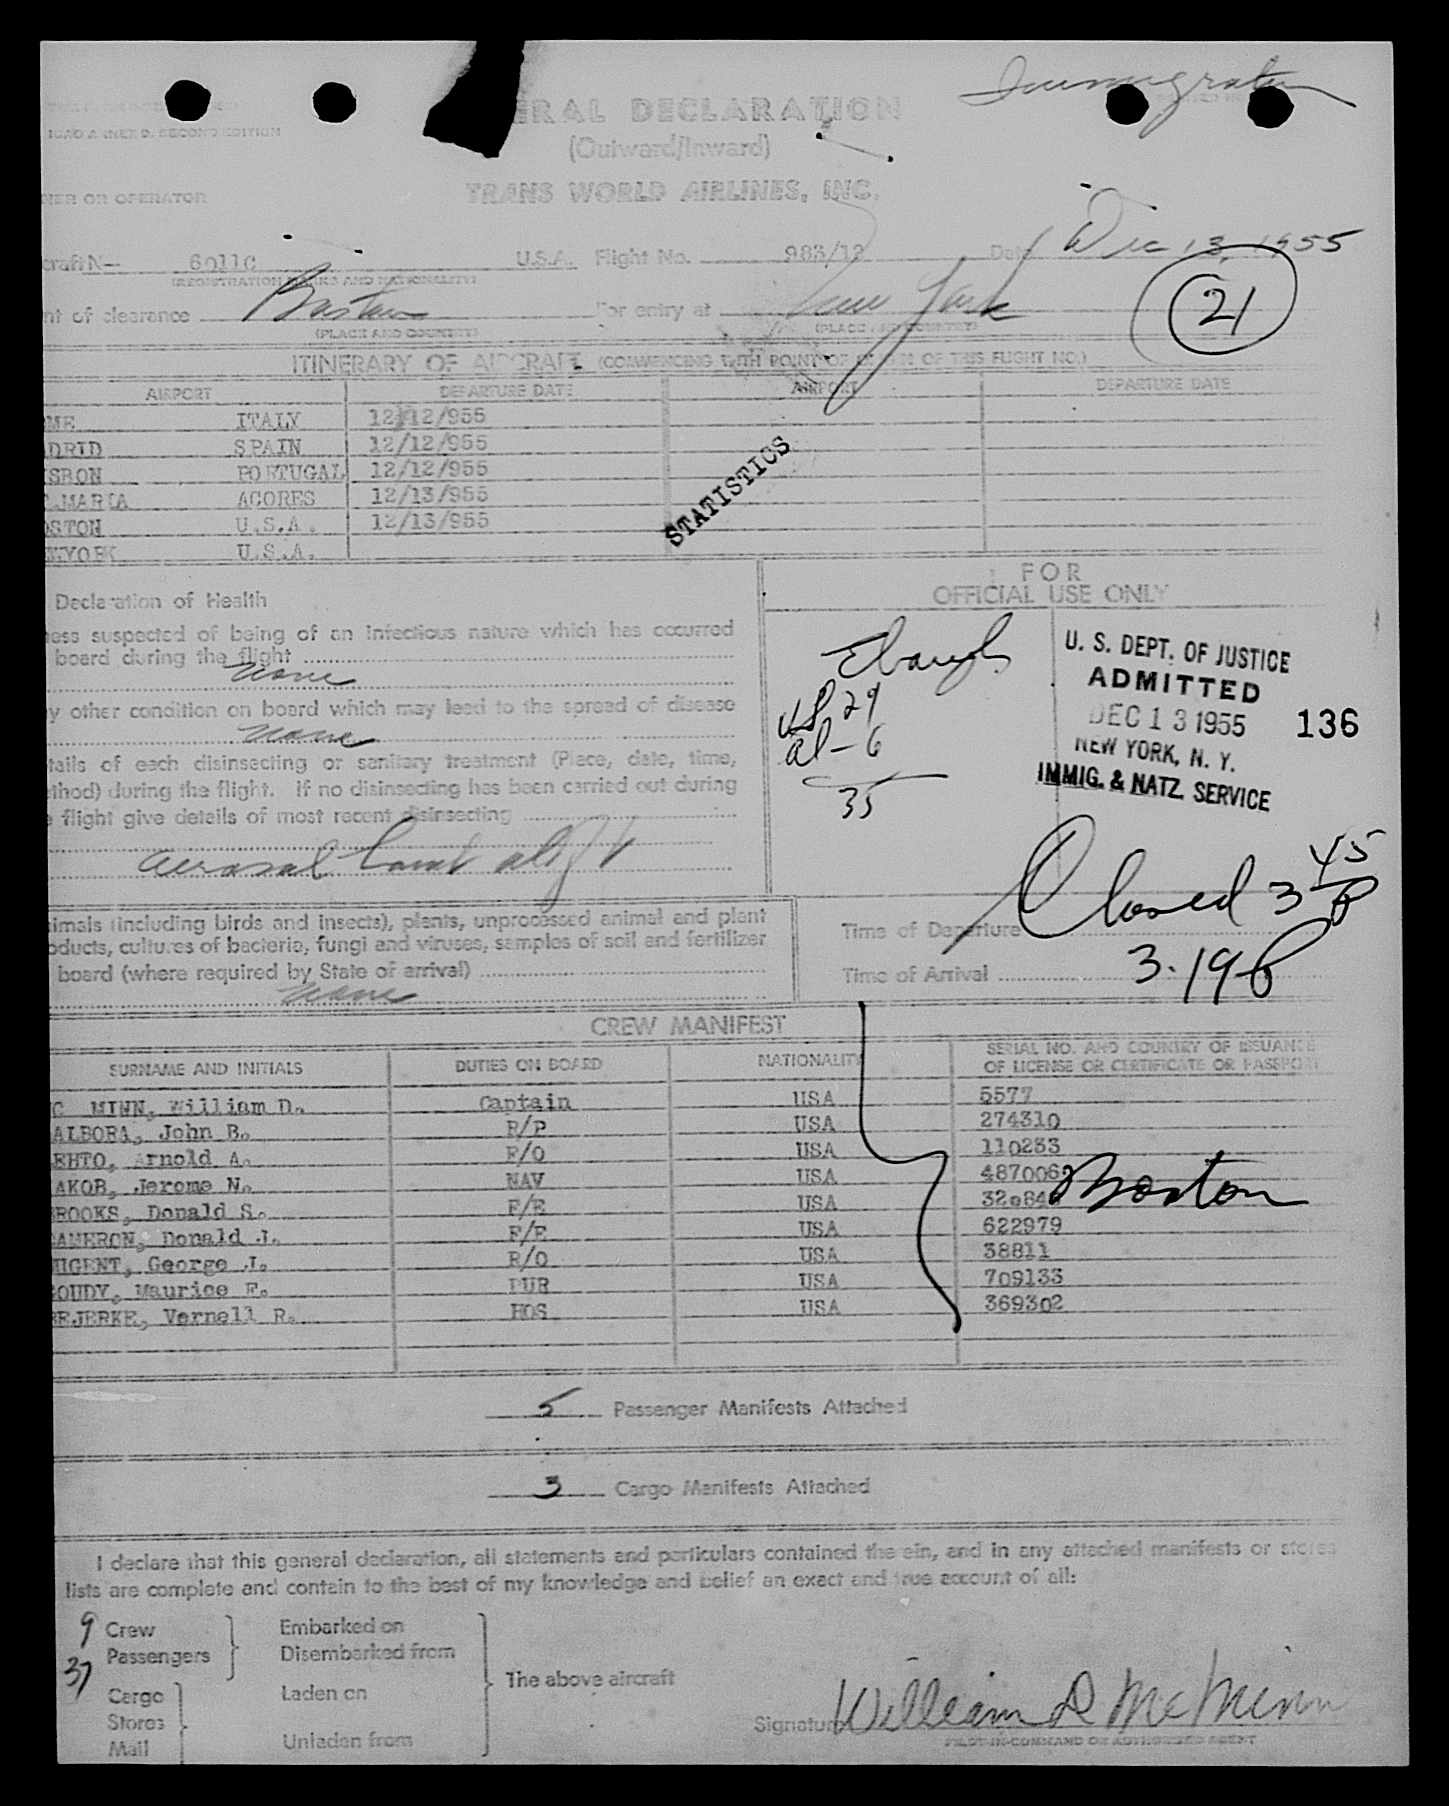 Immigration
ERAL DECLARATION
ICAO ANNEX 9, SECOND EDITION
(Outward/Inward)
NER OR OPERATOR
TRANS WORLD AIRLINES, INC.
craft N— 6011C U.S.A. Flight No. 983/12 Date Dec 13, 1955
(REGISTRATION MARKS AND NATIONALITY)
21
nt of clearance Boston For entry at New York
(PLACE AND COUNTRY) (PLACE AND COUNTRY)
ITINERARY OF AIRCRAFT (COMMENCING WITH POINT OF ORIGIN OF THIS FLIGHT NO.)
AIRPORT DEPARTURE DATE AIRPORT DEPARTURE DATE
ME ITALY 12/12/955
ADRID SPAIN 12/12/955
ISBON PORTUGAL 12/12/955
T.MARIA ACORES 12/13/955
OSTON U.S.A. 12/13/955
W.YORK U.S.A.
STATISTICS
FOR
OFFICIAL USE ONLY
Declaration of Health
ness suspected of being of an infectious nature which has occurred
board during the flight
None
y other condition on board which may lead to the spread of disease
None
tails of each disinsecting or sanitary treatment (Place, date, time,
thod) during the flight. If no disinsecting has been carried out during
e flight give details of most recent disinsecting
aerosol
US 29
al - 6
35
U. S. DEPT. OF JUSTICE
ADMITTED
DEC 13 1955 136
NEW YORK, N. Y.
IMMIG. & NATZ. SERVICE
imals (including birds and insects), plants, unprocessed animal and plant
oducts, cultures of bacteria, fungi and viruses, samples of soil and fertilizer
board (where required by State of arrival)
None
Time of Departure Closed 3 45 P
Time of Arrival 3.19 P
CREW MANIFEST
SURNAME AND INITIALS DUTIES ON BOARD NATIONALITY SERIAL NO. AND COUNTRY OF ISSUANCE
OF LICENSE OR CERTIFICATE OR PASSPORT
C MINN, William D. Captain USA 5577
ALBORA, John B. R/P USA 274310
EHTO, Arnold A. F/O USA 110233
AKOB, Jerome N. NAV USA 487006
BROOKS, Donald S. F/E USA
CAMERON, Donald J. F/E USA 622979
NUGENT, George J. R/O USA 38811
OUDY, Maurice F. PUR USA 709133
EJERKE, Vernell R. HOS USA 369302
Boston
5 Passenger Manifests Attached
3 Cargo Manifests Attached
I declare that this general declaration, all statements and particulars contained therein, and in any attached manifests or stores
lists are complete and contain to the best of my knowledge and belief an exact and true account of all:
9 Crew Embarked on
37 Passengers Disembarked from
The above aircraft
Cargo Laden on
Stores
Mail Unladen from
Signature William D McMinn
PILOT-IN-COMMAND OR AUTHORIZED AGENT